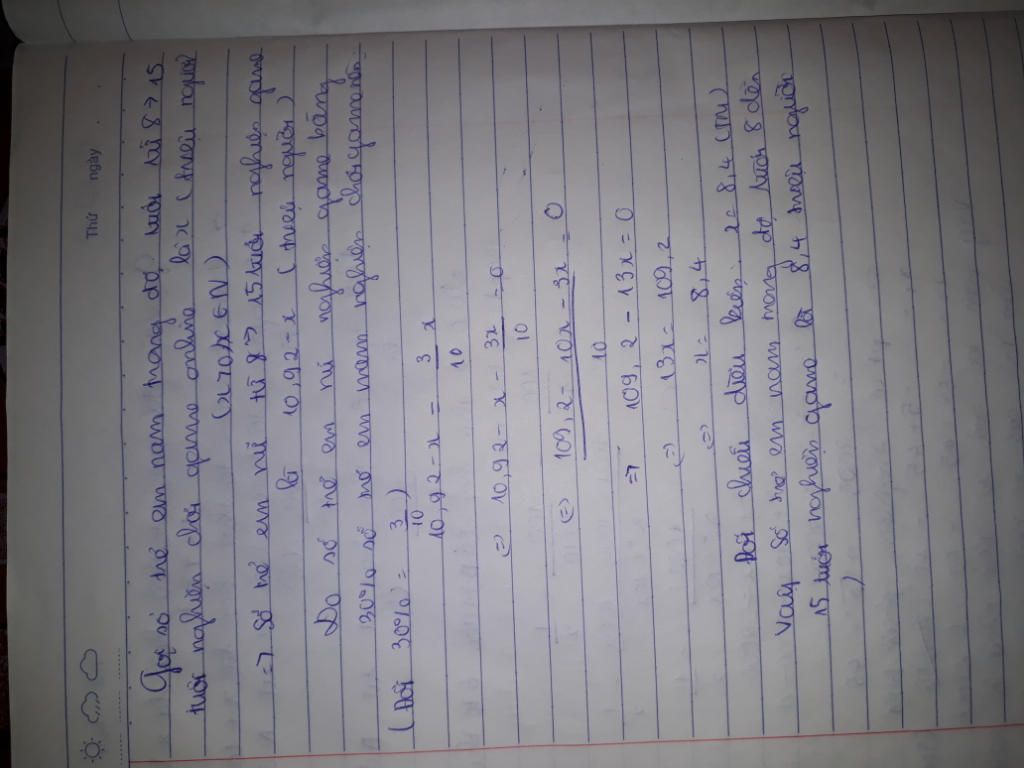 Thứ ngày
Gọi số trẻ em nam trong độ tuổi từ 8 → 15
tuổi nghiện chơi game online là x (triệu người)
(x > 0, x ∈ N)
=> Số trẻ em nữ từ 8 → 15 tuổi nghiện game
là 10,92 - x (triệu người)
Do số trẻ em nữ nghiện game bằng
30% số trẻ em nam nghiện chơi game nên:
(Đổi 30% = 3/10)
10,92 - x = 3/10 x
<=> 10,92 - x - 3x/10 = 0
<=> 109,2 - 10x - 3x / 10 = 0
=> 109,2 - 13x = 0
<=> 13x = 109,2
<=> x = 8,4
Đối chiếu điều kiện: x = 8,4 (TM)
Vậy số trẻ em nam trong độ tuổi 8 đến
15 tuổi nghiện game là 8,4 triệu người